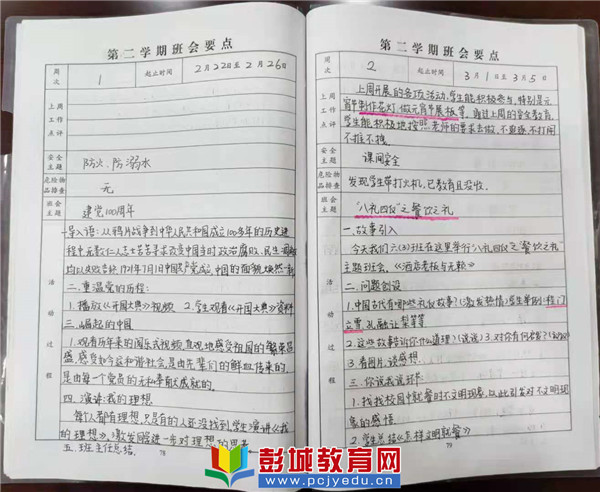 第二学期班会要点
周次
1
起止时间
2月22日至2月26日
上周工作点评
安全主题
防火、防溺水
危险物品排查
无
班会主题
建党100周年
活动过程
一导入语:从鸦片战争到中华人民共和国成立100多年的历史进
程中无数仁人志士苦苦寻求改变中国当时政治腐败、民生凋敝
均以失败告终.1921年7月1日中国共产党成立,中国的面貌焕然一新
二.重温党的历程:
1.播放《开国大典》视频 2.学生观看《开国大典》资料
三.崛起的中国
1.观看历年来的国乐式视频,直观地感受祖国的繁荣昌
盛,感受如今这和谐社会是由先辈们的鲜血传来的,
是由每个党员的无私奉献成就的.
四.演讲:我的理想
每个人都有理想,只是有的人还没找到,学生演讲《我
的理想》,激发同学进一步对理想的思考
五.班主任总结.
78
第二学期班会要点
周次
2
起止时间
3月1日至3月5日
上周工作点评
上周开展的各项活动,学生能积极参与,特别是元
宵节制作花灯、做元宵节展板等,通过上周的安全教育,
学生能积极地按照老师的要求去做,不追逐,不打闹
不推不拽.
安全主题
课间安全
危险物品排查
发现学生带打火机,已教育且没收.
班会主题
"八礼四仪"之餐饮之礼
活动过程
一.故事引入
今天我们六(3)班在这里举行"八礼四仪"之"餐饮之礼"
主题班会.《酒店老板与无赖》
二.问题创设
1.中国古代有哪些礼仪故事?(激发热情)学生举例:程门
立雪,孔融让梨等等
2.这些故事告诉你什么道理?(说说)3.对你有何启发?
3.看图片,谈感想.
三.你说我说环节:
1.找找校园中就餐时不文明现象,以此引发对不文明现
象的感悟
2.学生总结《怎样文明就餐》
79
彭城教育网
www.pcjyedu.cn